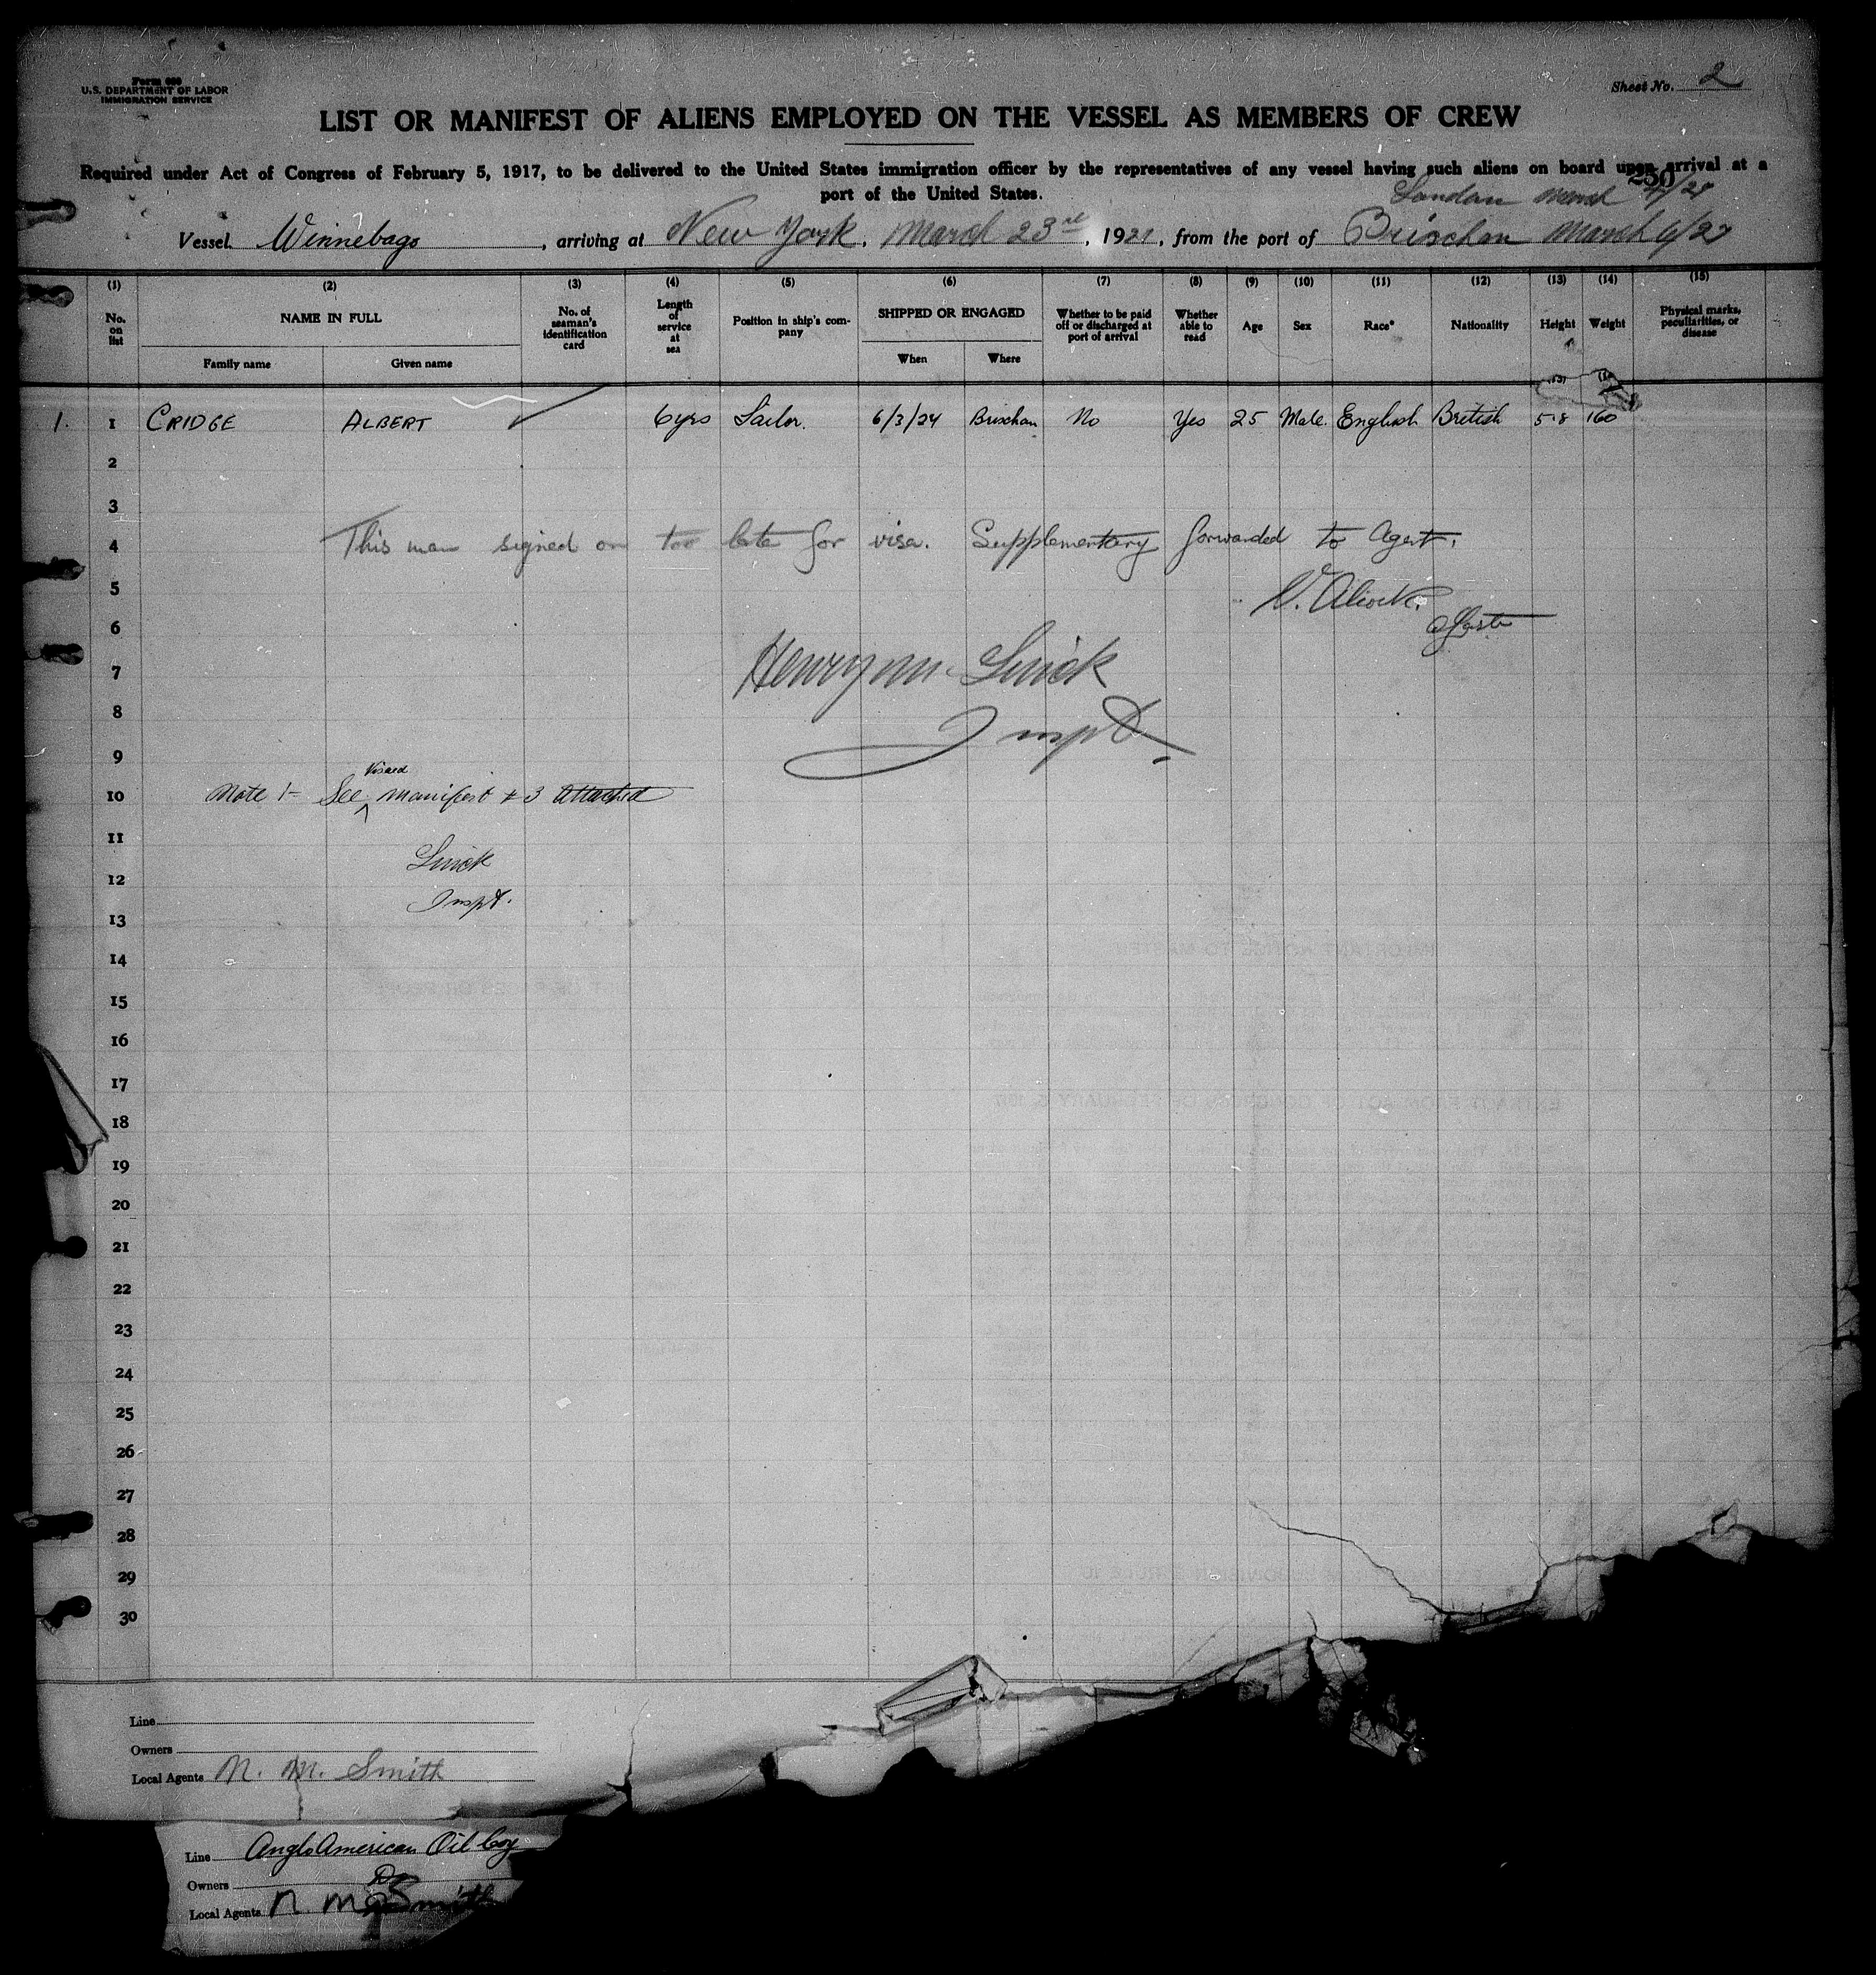 Form 680
U.S. DEPARTMENT OF LABOR
IMMIGRATION SERVICE
Sheet No. 2
LIST OR MANIFEST OF ALIENS EMPLOYED ON THE VESSEL AS MEMBERS OF CREW
Required under Act of Congress of February 5, 1917, to be delivered to the United States immigration officer by the representatives of any vessel having such aliens on board upon arrival at a
port of the United States.
250
London March
Vessel Winnebago, arriving at New York, March 23rd, 1921, from the port of Brixham March 6/21
(1) (2) (3) (4) (5) (6) (7) (8) (9) (10) (11) (12) (13) (14) (15)
No. on list
NAME IN FULL
Family name
Given name
No. of seaman's identification card
Length of service at sea
Position in ship's company
SHIPPED OR ENGAGED
When
Where
Whether to be paid off or discharged at port of arrival
Whether able to read
Age
Sex
Race*
Nationality
Height
Weight
Physical marks, peculiarities, or disease
1. 1 CRIDGE ALBERT 6yrs Sailor. 6/3/21 Brixham No Yes 25 Male. English British 5-8 160
2
3
4 This man signed on too late for visa. Supplementary forwarded to Agent.
5 V. Alcock.
6
7 Henry M. Quick
8 Inspt.
9 Visaed
10 Note 1- See manifest # 3 attached
11 Quick
12 Inspt.
13
14
15
16
17
18
19
20
21
22
23
24
25
26
27
28
29
30
Line
Owners
Local Agents N. M. Smith
Line Anglo American Oil Coy
Owners Do
Local Agents N. M. Smith